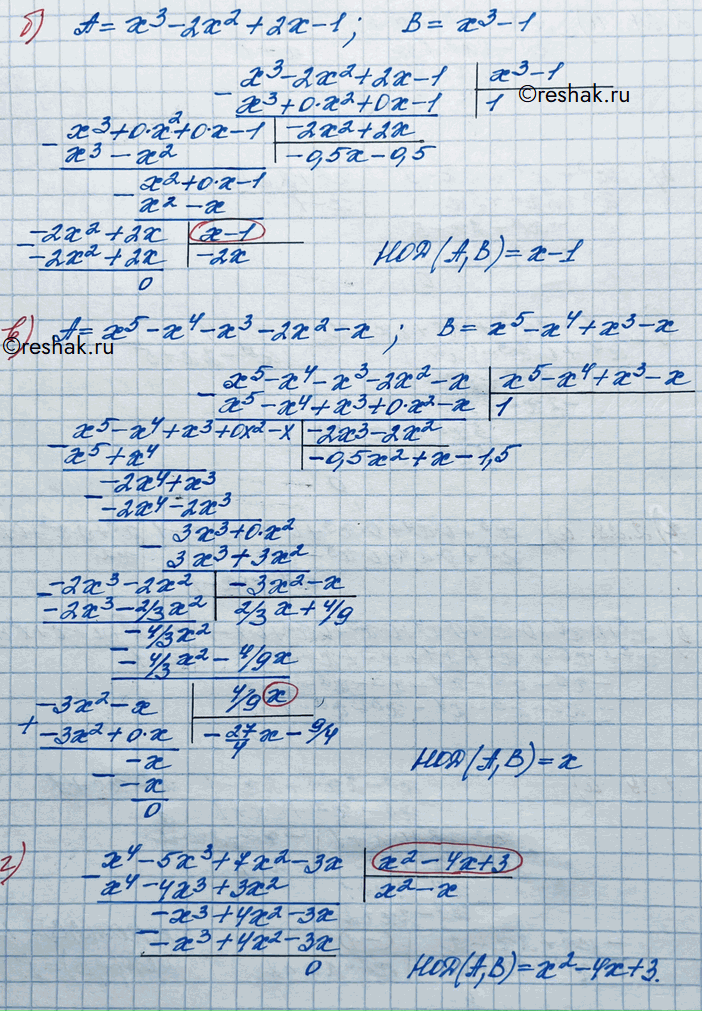 б) A = x³ - 2x² + 2x - 1; B = x³ - 1
- x³ - 2x² + 2x - 1 | x³ - 1
x³ + 0·x² + 0x - 1 | 1
©reshak.ru
- x³ + 0·x² + 0·x - 1 | -2x² + 2x
x³ - x² | -0,5x - 0,5
- x² + 0·x - 1
x² - x
- -2x² + 2x | x - 1
-2x² + 2x | -2x
0
НОД(A,B) = x - 1
в) A = x⁵ - x⁴ - x³ - 2x² - x; B = x⁵ - x⁴ + x³ - x
©reshak.ru
- x⁵ - x⁴ - x³ - 2x² - x | x⁵ - x⁴ + x³ - x
x⁵ - x⁴ + x³ + 0·x² - x | 1
- x⁵ - x⁴ + x³ + 0x² - x | -2x³ - 2x²
x⁵ + x⁴ | -0,5x² + x - 1,5
- -2x⁴ + x³
-2x⁴ - 2x³
- 3x³ + 0·x²
3x³ + 3x²
- -2x³ - 2x² | -3x² - x
-2x³ - 2/3x² | 2/3x + 4/9
- -4/3x²
-4/3x² - 4/9x
+ -3x² - x | 4/9x
-3x² + 0·x | -27/4x - 9/4
- -x
-x
0
НОД(A,B) = x
г) - x⁴ - 5x³ + 7x² - 3x | x² - 4x + 3
x⁴ - 4x³ + 3x² | x² - x
- -x³ + 4x² - 3x
-x³ + 4x² - 3x
0
НОД(A,B) = x² - 4x + 3.